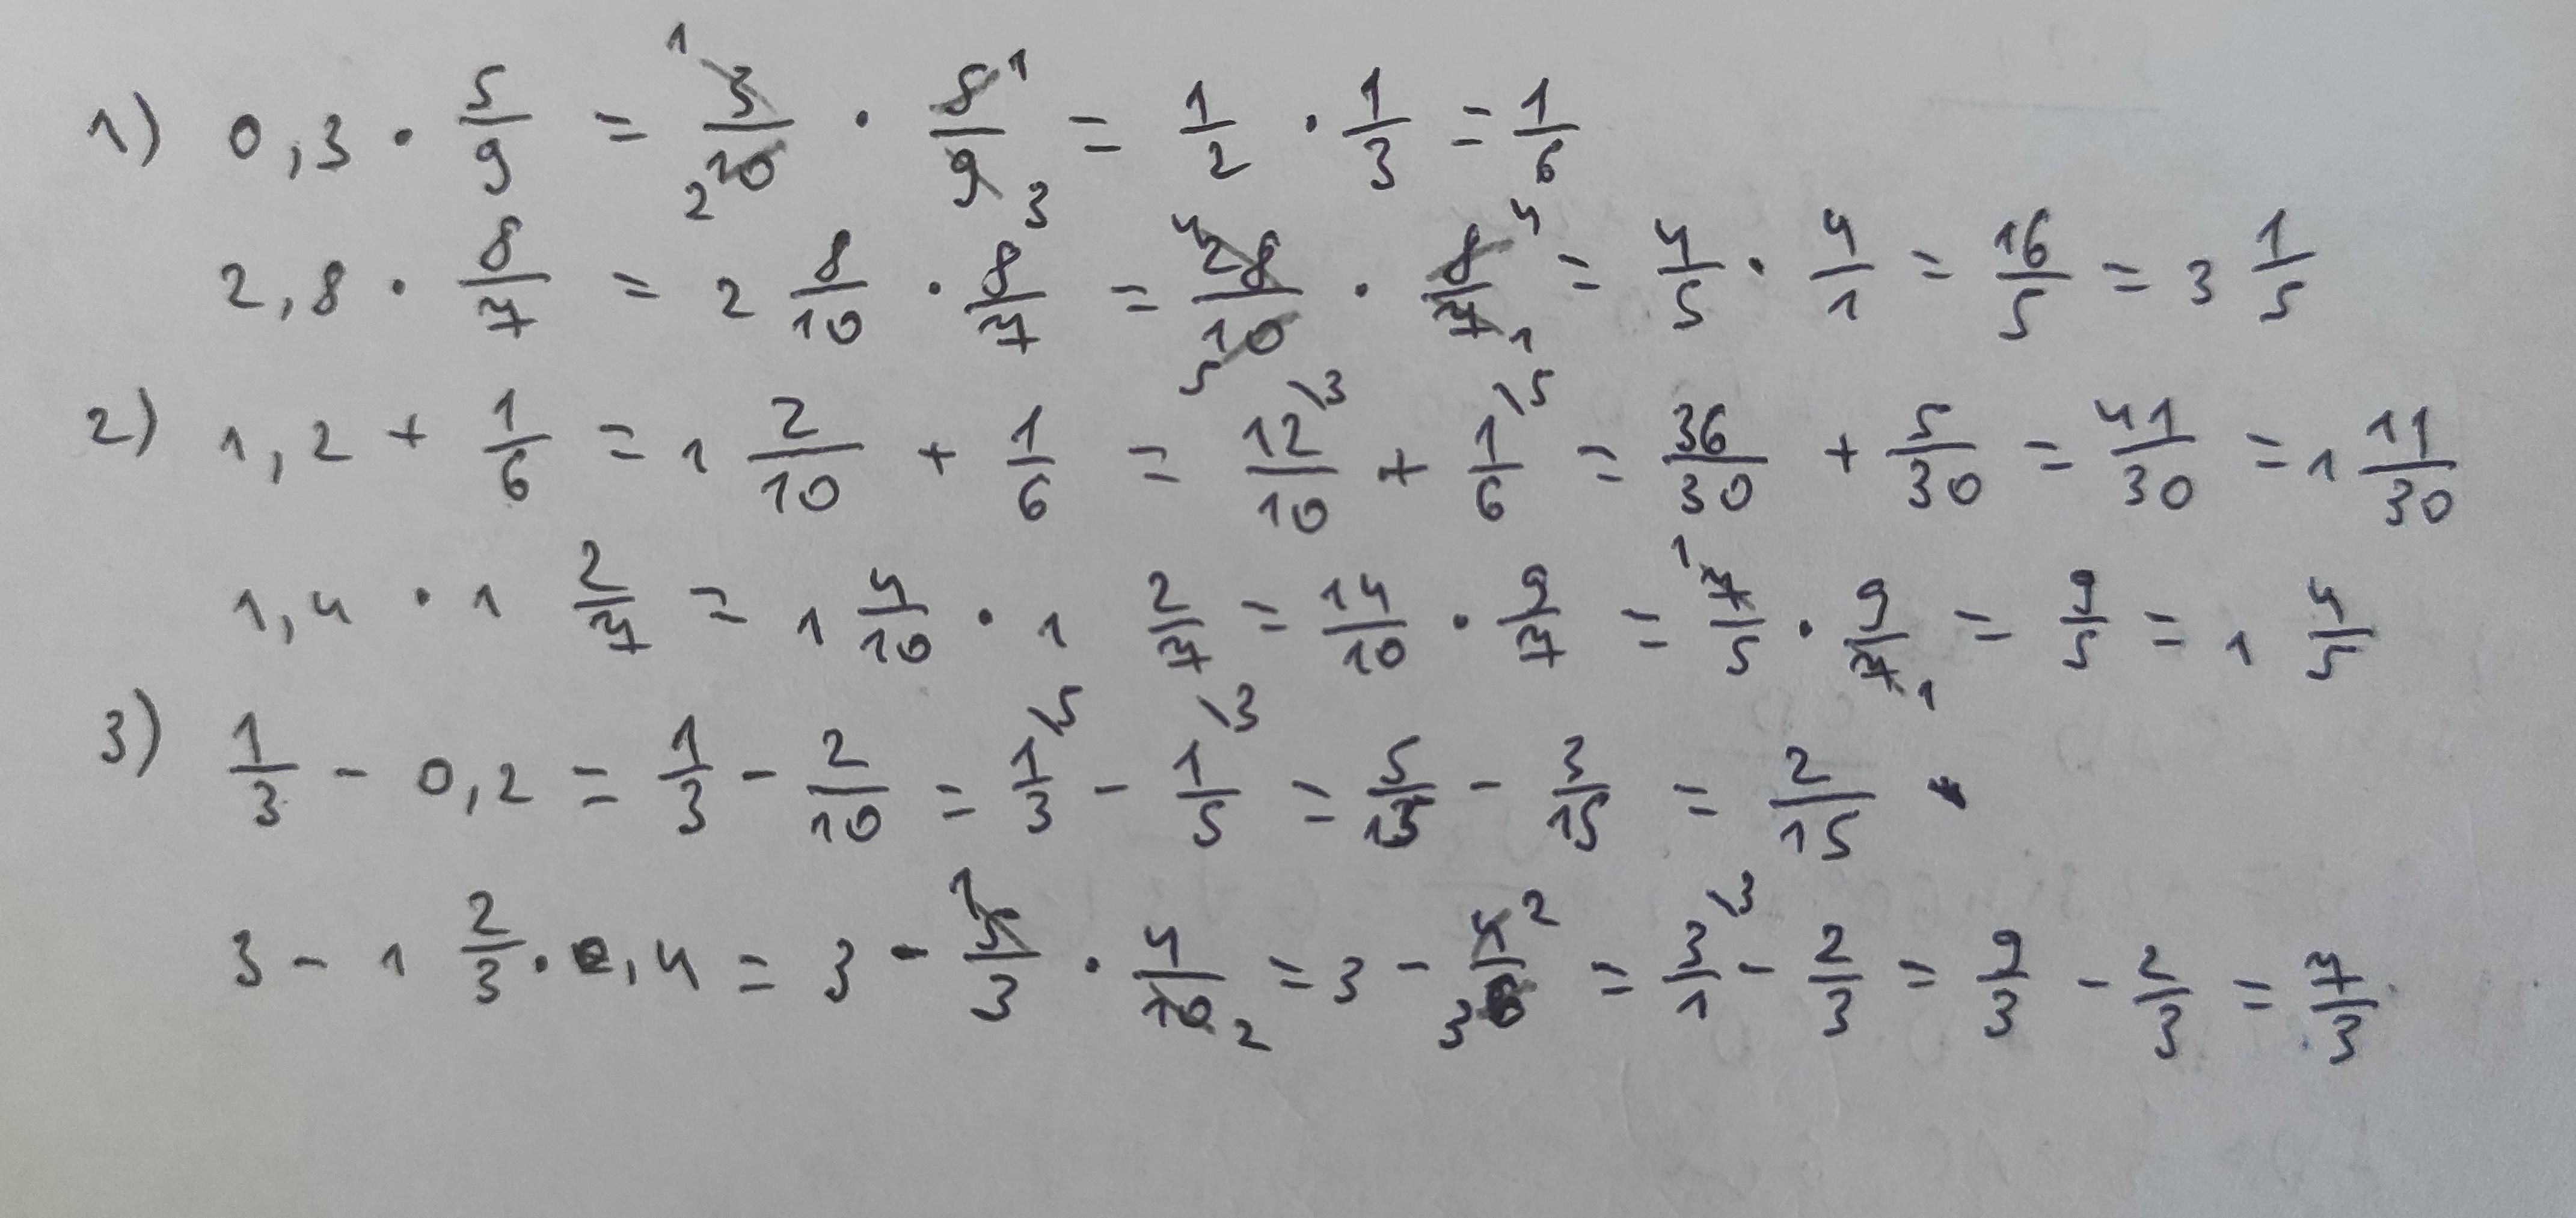 1) 0,3 · 5/9 = 3/10 · 8/9 = 1/2 · 1/3 = 1/6
2,8 · 8/7 = 2 8/10 · 8/7 = 28/10 · 8/7 = 4/5 · 4/1 = 16/5 = 3 1/5
2) 1,2 + 1/6 = 1 2/10 + 1/6 = 12/10 \3 + 1/6 \5 = 36/30 + 5/30 = 41/30 = 1 11/30
1,4 · 1 2/7 = 1 4/10 · 1 2/7 = 14/10 · 9/7 = 7/5 · 9/7 = 9/5 = 1 4/5
3) 1/3 - 0,2 = 1/3 - 2/10 = 1/3 \5 - 1/5 \3 = 5/15 - 3/15 = 2/15
3 - 1 2/3 · 0,4 = 3 - 5/3 · 4/10 = 3 - 4/6 = 3/1 \3 - 2/3 = 9/3 - 2/3 = 7/3